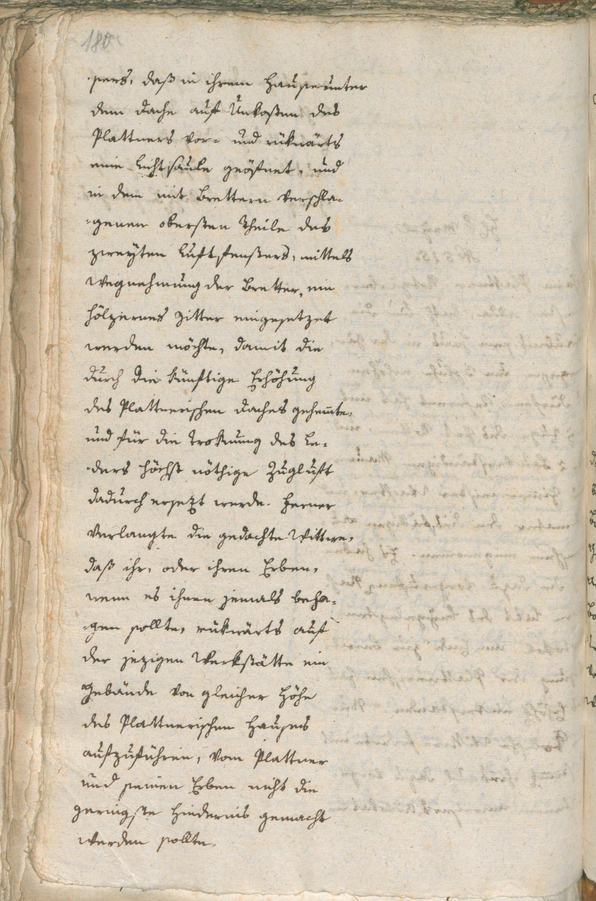 180
pers, daß in ihrem Hause unter
dem Dache auf Unkosten des
Plattners vor- und rükwärts
eine Lichtsäule geöfnet, und
in dem mit Brettern verschla-
genen obersten Theile des
zweyten Luftfensters, mittels
Wegnehmung der Bretter, ein
hölzernes Gitter eingesetzet
werden möchte, damit die
durch die künftige Erhöhung
des Plattnerischen Daches gehemte,
und für die Troknung des Le-
ders höchst nöthige Zugluft
dadurch ersezt werde. Ferner
verlangte die gedachte Wittwe,
daß ihr, oder ihren Erben,
wenn es ihnen jemals beha-
gen sollte, rükwärts auf
der jezigen Werkstätte ein
Gebäude von gleicher Höhe
des Plattnerischen Hauses
aufzuführen, vom Plattner
und seinen Erben nicht die
geringste Hindernis gemacht
werden sollte.